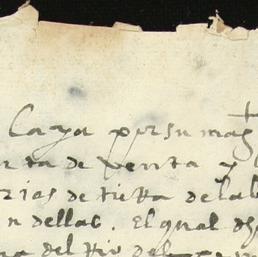 Caya por su mag
nta de Venta y
rias de tierra de la l
n dellas. El qual d
na del Rio del